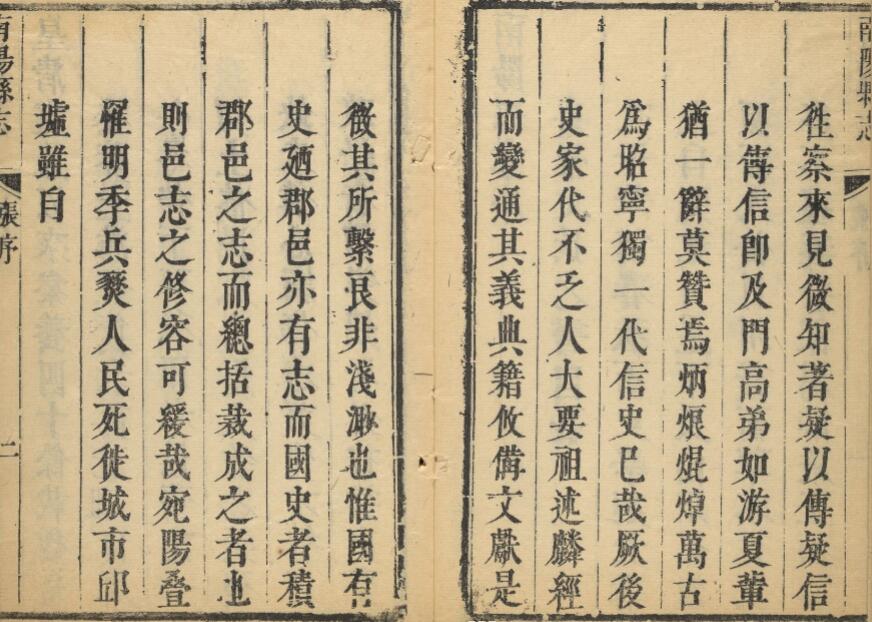 南陽縣志
徃察來見微知著疑以傳疑信
以傳信卽及門高弟如游夏輩
猶一辭莫贊焉炳烺焜焯萬古
爲昭寧獨一代信史已哉厥後
史家代不乏人大要祖述麟經
而變通其義典籍攸備文獻是
徵其所繫良非淺渺也惟國有
史廼郡邑亦有志而國史者積
郡邑之志而總括裁成之者也
則邑志之修容可緩哉宛陽疊
罹明季兵燹人民死徙城市邱
墟雖自
南陽縣志
張序
二